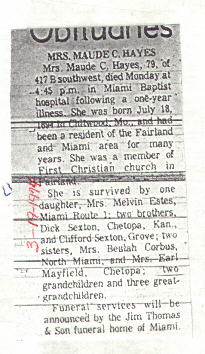 Obituaries
MRS. MAUDE C. HAYES
Mrs. Maude C. Hayes, 79, of
417 B southwest, died Monday at
4:45 p.m. in Miami Baptist
hospital following a one-year
illness. She was born July 18,
1894 in Chitwood, Mo., and had
been a resident of the Fairland
and Miami area for many
years. She was a member of
First Christian church in
Fairland.
She is survived by one
daughter, Mrs. Melvin Estes,
Miami Route 1; two brothers,
Dick Sexton, Chetopa, Kan.,
and Clifford Sexton, Grove; two
sisters, Mrs. Beulah Corbus,
North Miami, and Mrs. Earl
Mayfield, Chetopa; two
grandchildren and three great-
grandchildren.
Funeral services will be
announced by the Jim Thomas
& Son funeral home of Miami.